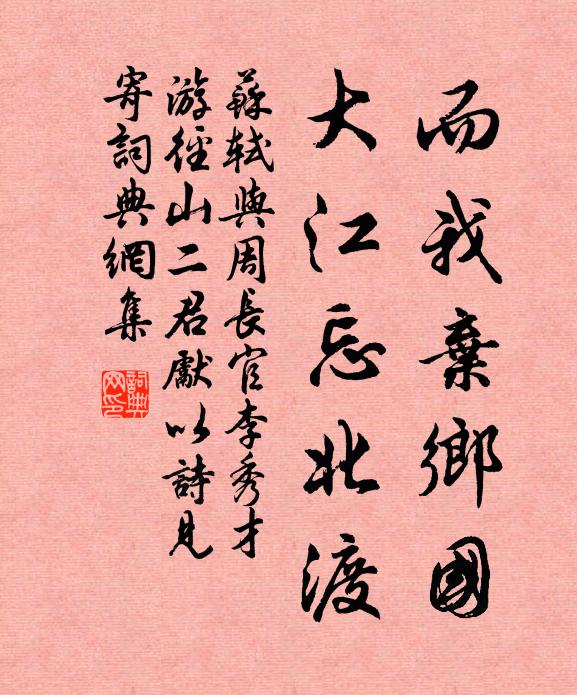 而我棄鄉國
大江忘北渡
蘇軾與周長官李秀才
游徑山二君獻以詩見
寄詞典網集
詞典
网印